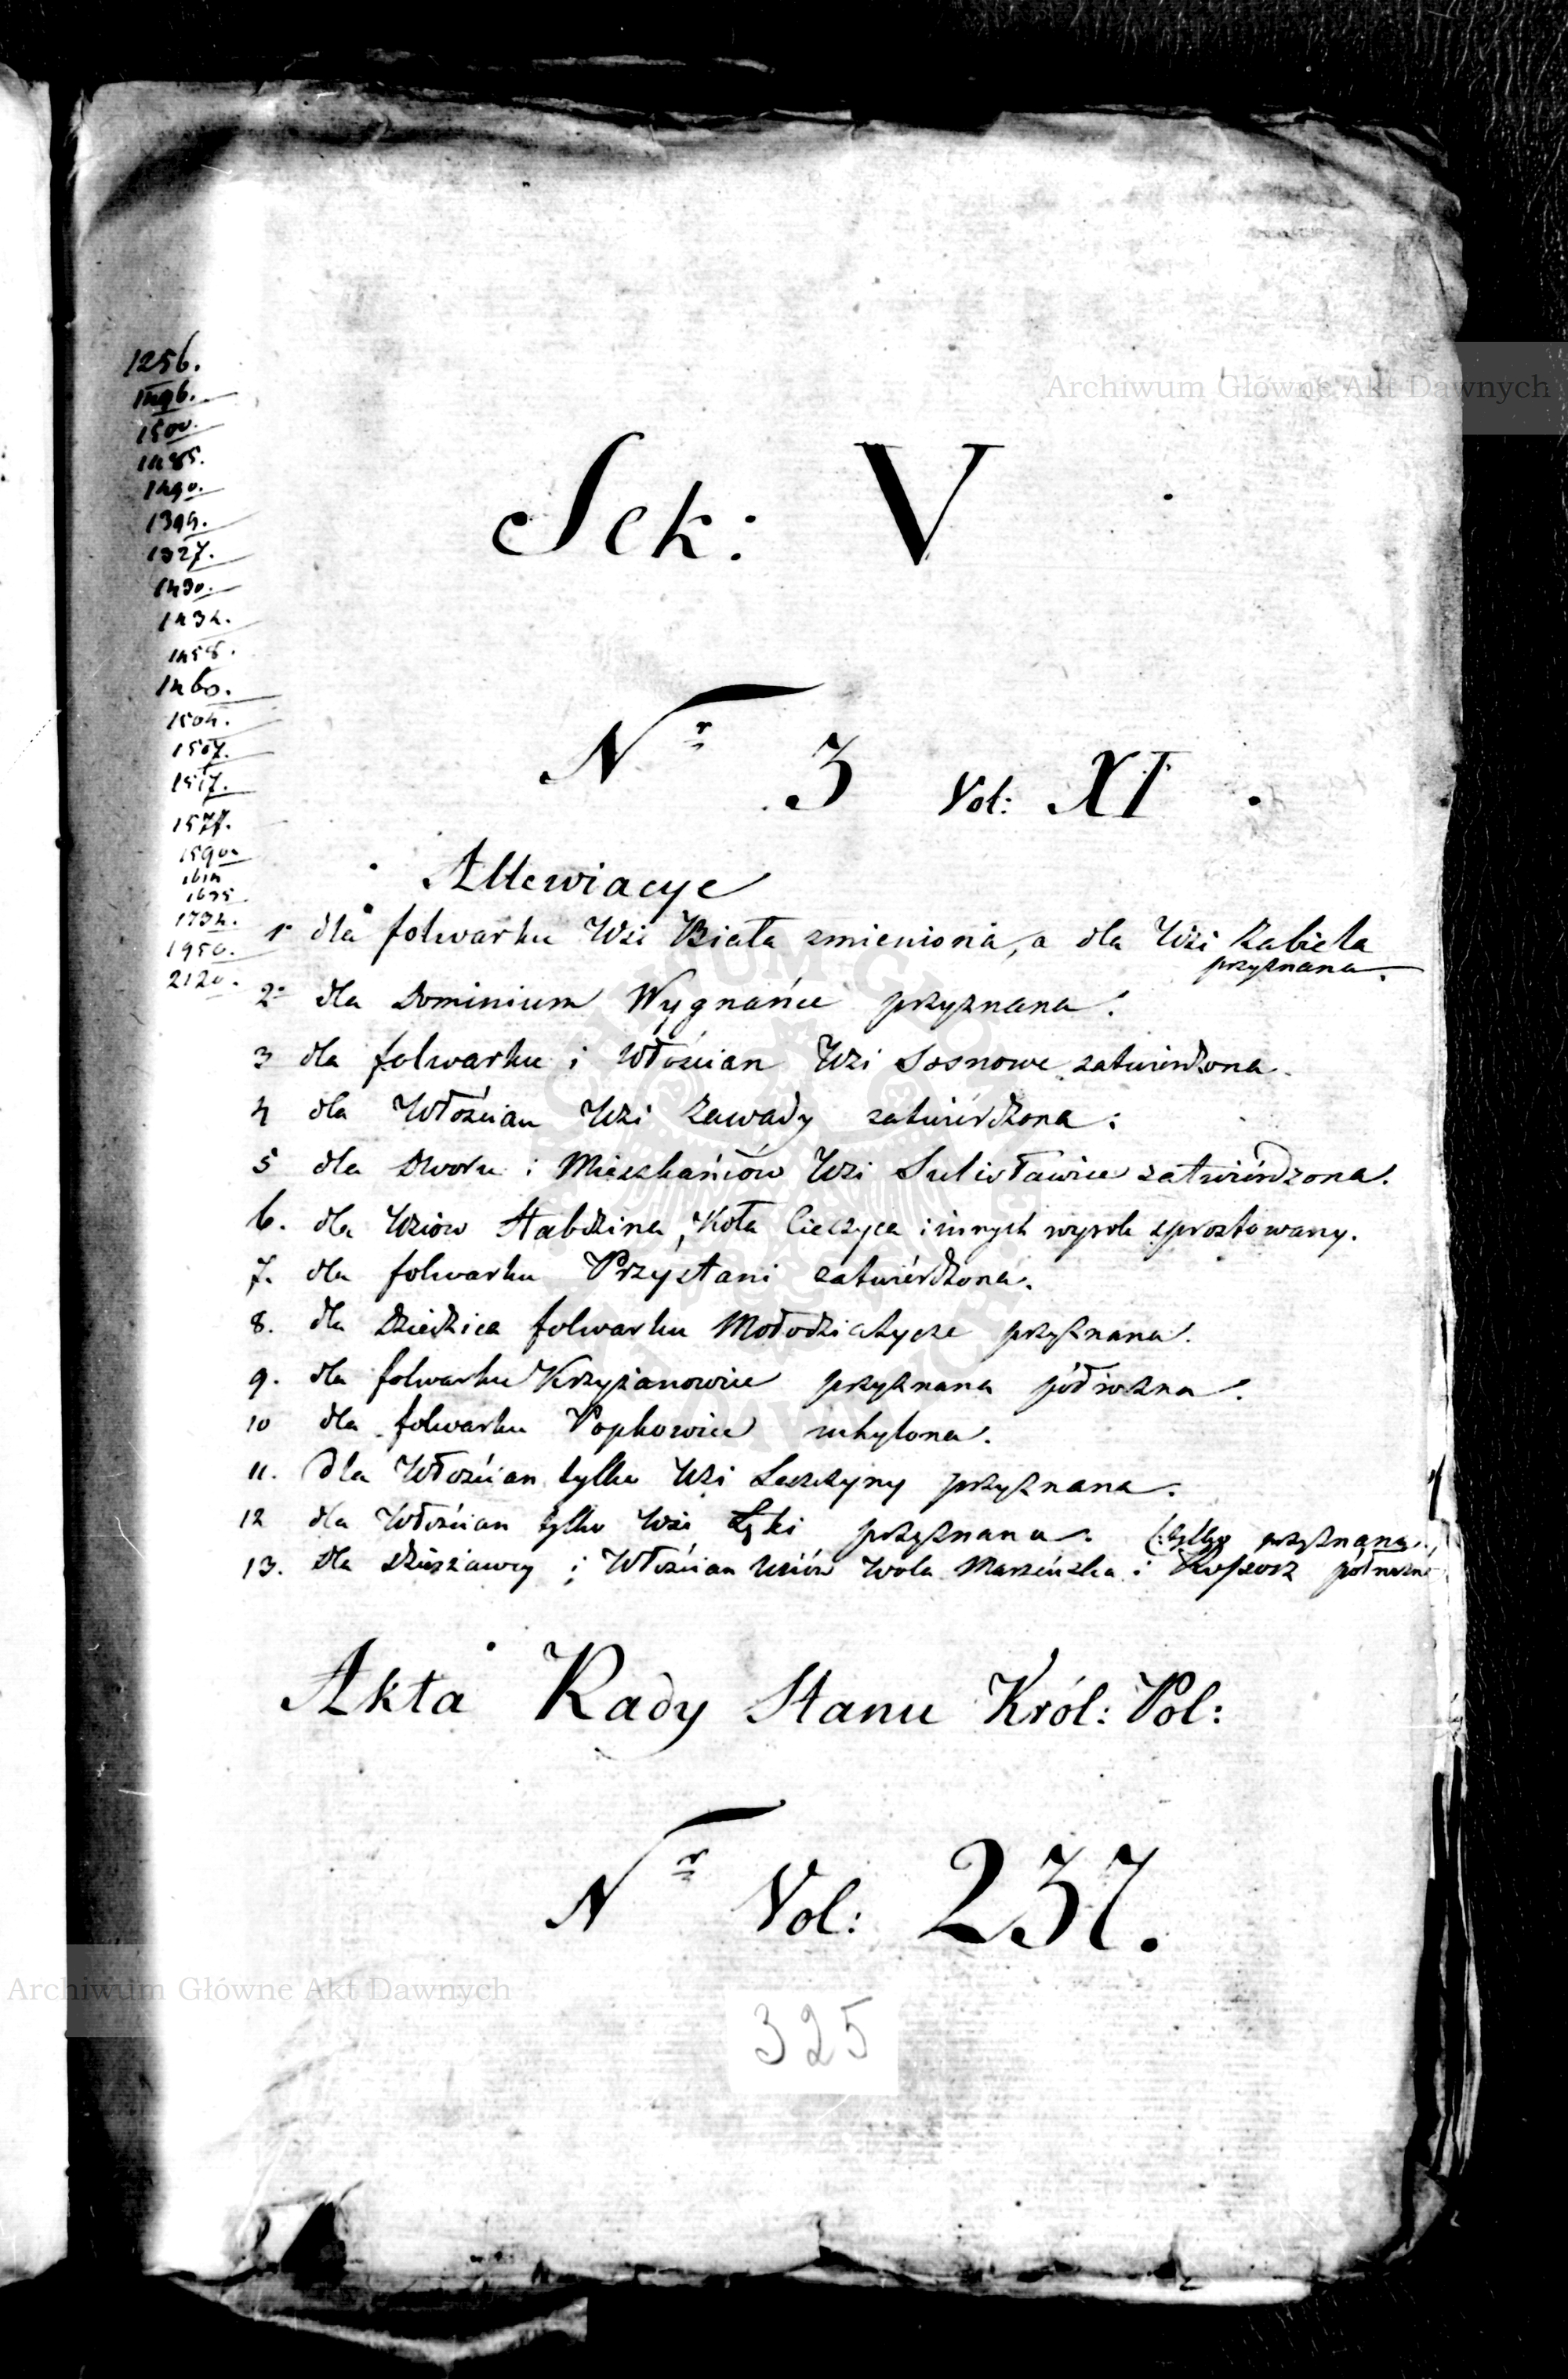 Archiwum Główne Akt Dawnych
1256.
1496.
1500.
1485.
1490.
1394.
1327.
1430.
1434.
1458.
1460.
1504.
1507.
1517.
1577.
1590.
1614
1635.
1734.
1950.
2120.
Sek: V
Nr 3 Vol: XI
Allewiacye
1º dla folwarku Wsi Biała zmieniona, a dla Wsi Kabiela
przyznana.
2º dla Dominium Wygnańce przyznana.
3 dla folwarku i Włościan Wsi Sosnowe zatwierdzona.
4 dla Włościan Wsi Zawady zatwierdzona.
5 dla Dworu i Mieszkańców Wsi Sulisławice zatwierdzona.
6. dla Wsiów Stabdzina, Koła Cieczyca i innych wyrok sprostowany.
7. dla folwarku Przystani zatwierdzona.
8. dla Dziedzica folwarku Mołodziatycze przyznana.
9. dla folwarku Krzyżanowice przyznana półroczna.
10 dla folwarku Popkowice uchylona.
11. Dla Włościan tylko Wsi Leszczyny przyznana.
12 dla Włościan tylko Wsi Łęki przyznana.
(:tylko przyznana:)
13. Dla Dzierżawcy i Włościan Wsiów Wola Marzeńska i Rossosz półroczna
Akta Rady Stanu Król: Pol:
Nr Vol: 237.
Archiwum Główne Akt Dawnych
325